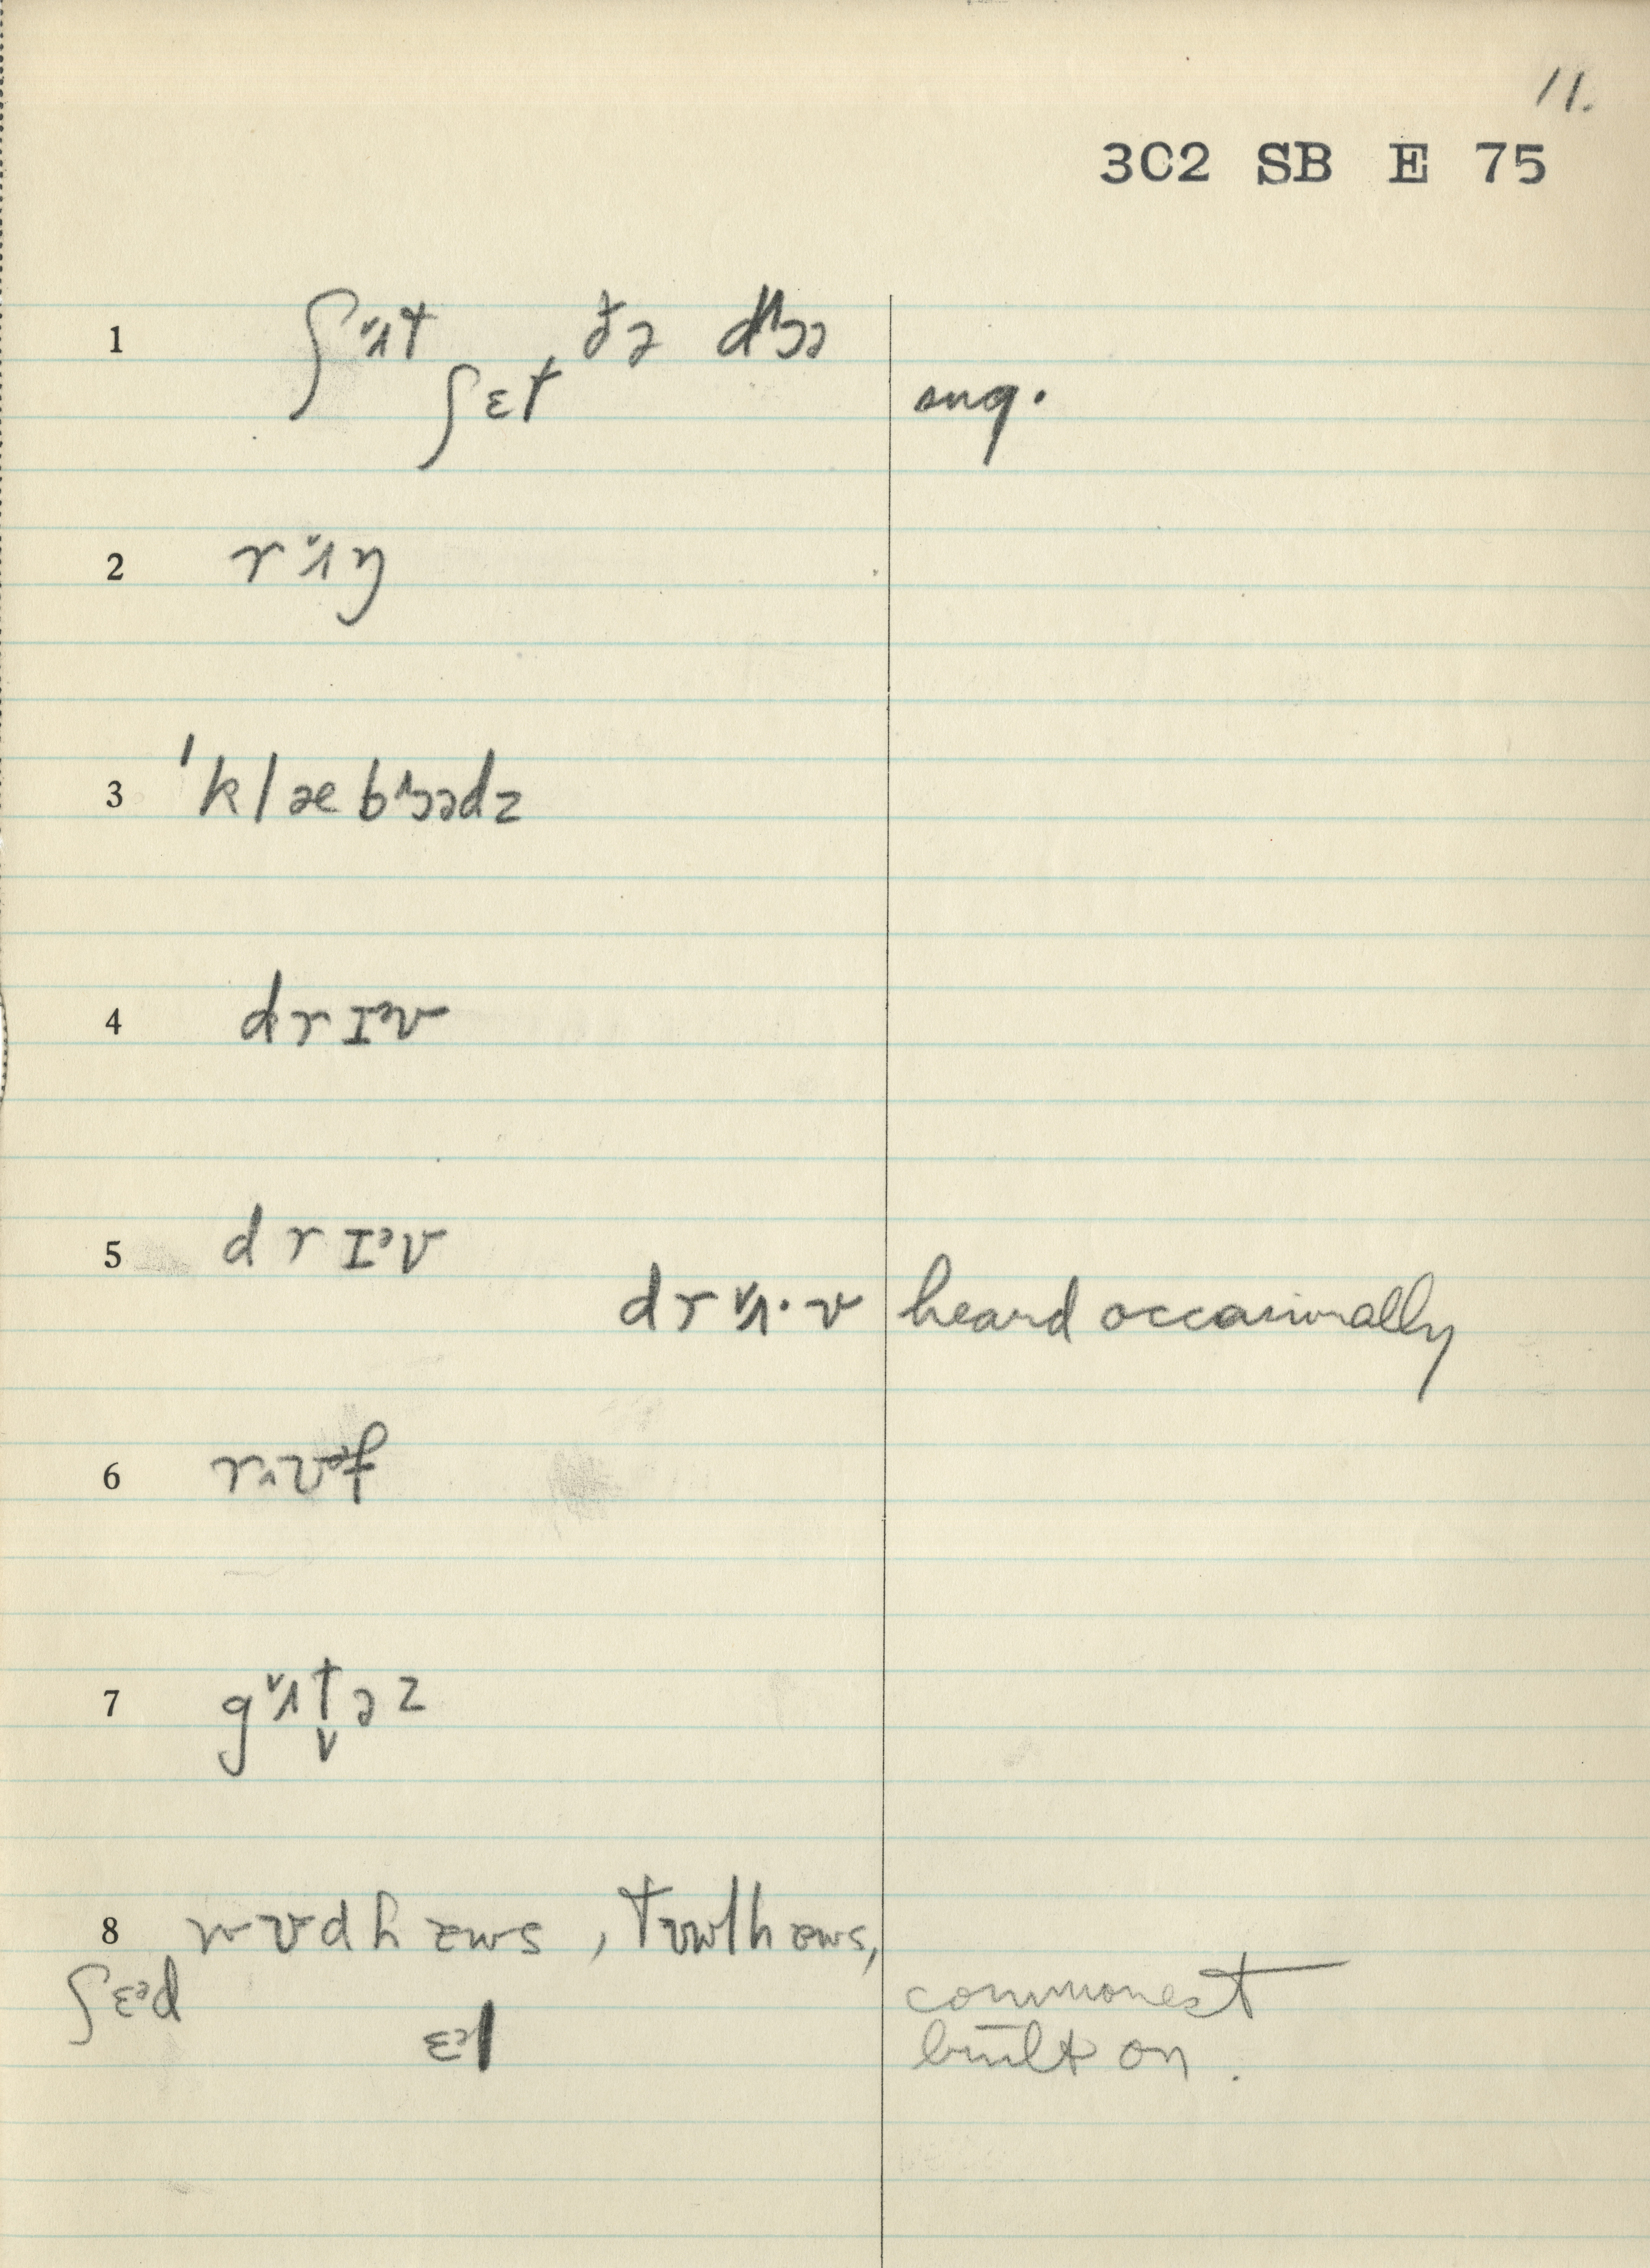 11.
3C2 SB E 75
1 ʃʌt ðə dɔə
ʃɛt sug.
2 rʌŋ
3 ˈklæbɔədz
4 drɪᵊv
5 drɪᵊv
drʌ·v heard occasionally
6 rʊᵊf
7 gʌt̬əz
8 wʊdhæʊs , tʊwlhæʊs,
ʃɛᵊd commonest
ɛᵊl built on .